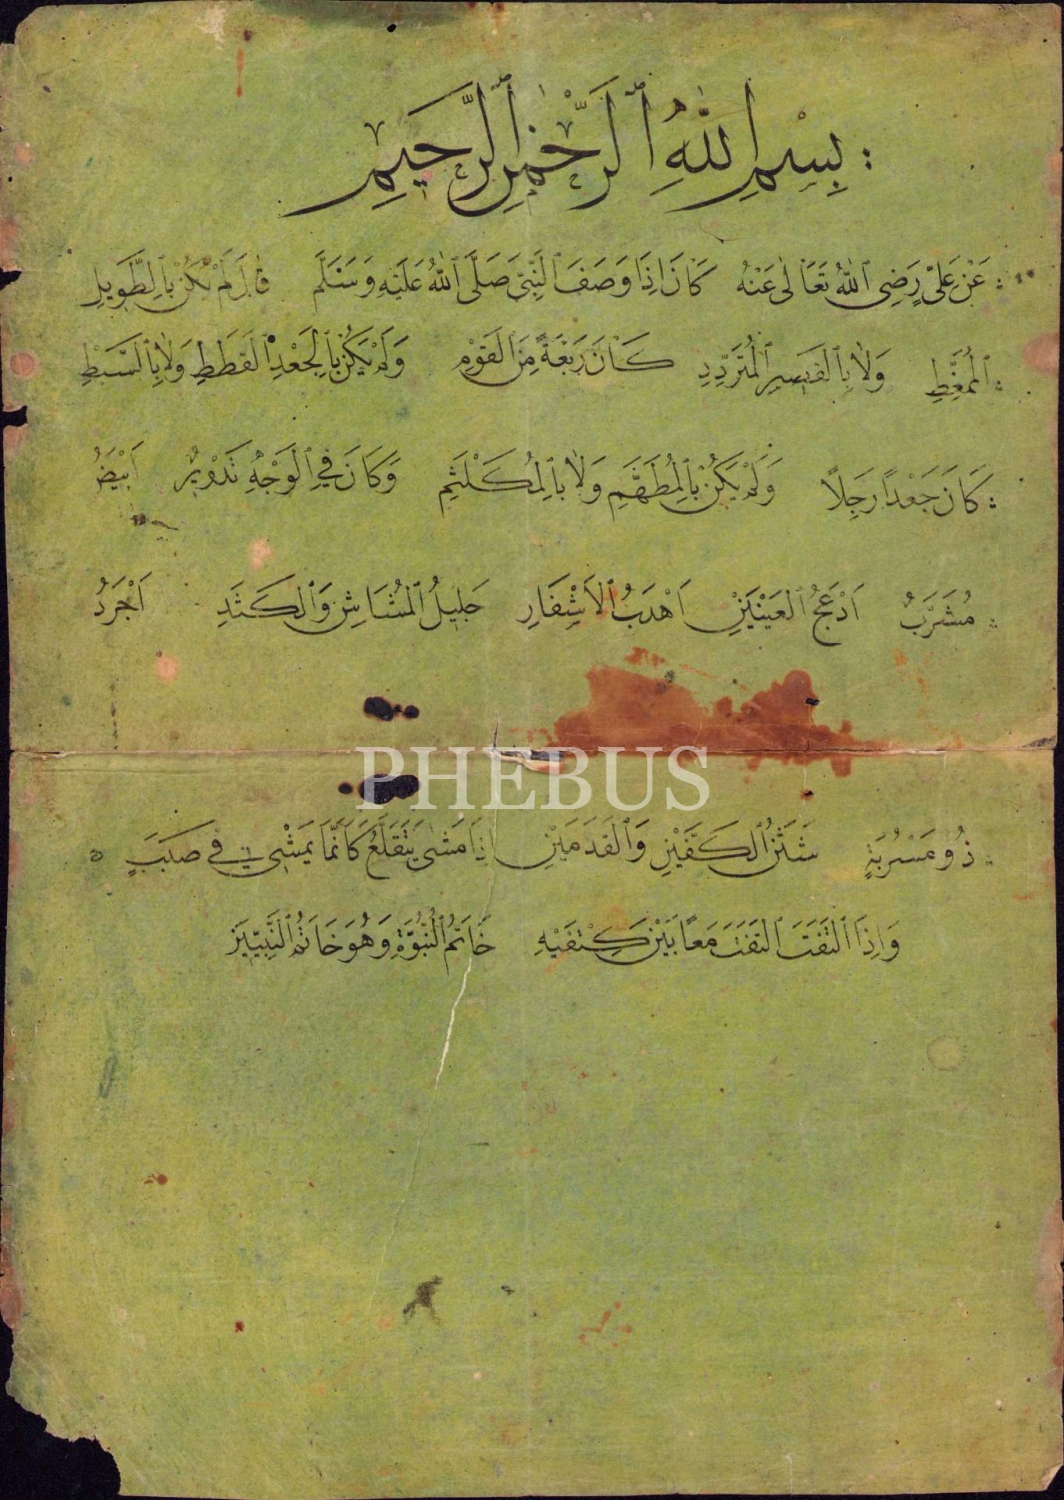 بِسْمِ اللّٰهِ ٱلرَّحْمٰنِ ٱلرَّحِيمِ
عَنْ عَلِيٍّ رَضِيَ ٱللّٰهُ تَعَالٰى عَنْهُ كَانَ اِذَا وَصَفَ ٱلنَّبِيَّ صَلَّى ٱللّٰهُ عَلَيْهِ وَسَلَّمَ قَالَ لَمْ يَكُنْ بِٱلطَّوِيلِ
ٱلْمُمَّغِطِ وَلَا بِٱلْقَصِيرِ ٱلْمُتَرَدِّدِ كَانَ رَبْعَةً مِنَ ٱلْقَوْمِ وَلَمْ يَكُنْ بِٱلْجَعْدِ ٱلْقَطَطِ وَلَا بِٱلسَّبْطِ
كَانَ جَعْدًا رَجِلًا وَلَمْ يَكُنْ بِٱلْمُطَهَّمِ وَلَا بِٱلْمُكَلْثَمِ وَكَانَ فِي ٱلْوَجْهِ تَدْوِيرٌ اَبْيَضُ
مُشَرَّبٌ اَدْعَجُ ٱلْعَيْنَيْنِ اَهْدَبُ ٱلْاَشْفَارِ جَلِيلُ ٱلْمُشَاشِ وَٱلْكَتَدِ اَجْرَدُ
PHEBUS
ذُو مَسْرُبَةٍ شَثْنُ ٱلْكَفَّيْنِ وَٱلْقَدَمَيْنِ اِذَا مَشٰى يَتَقَلَّعُ كَاَنَّمَا يَمْشِي فِي صَبَبٍ
وَاِذَا ٱلْتَفَتَ ٱلْتَفَتَ مَعًا بَيْنَ كَتِفَيْهِ خَاتَمُ ٱلنُّبُوَّةِ وَهُوَ خَاتَمُ ٱلنَّبِيِّينَ